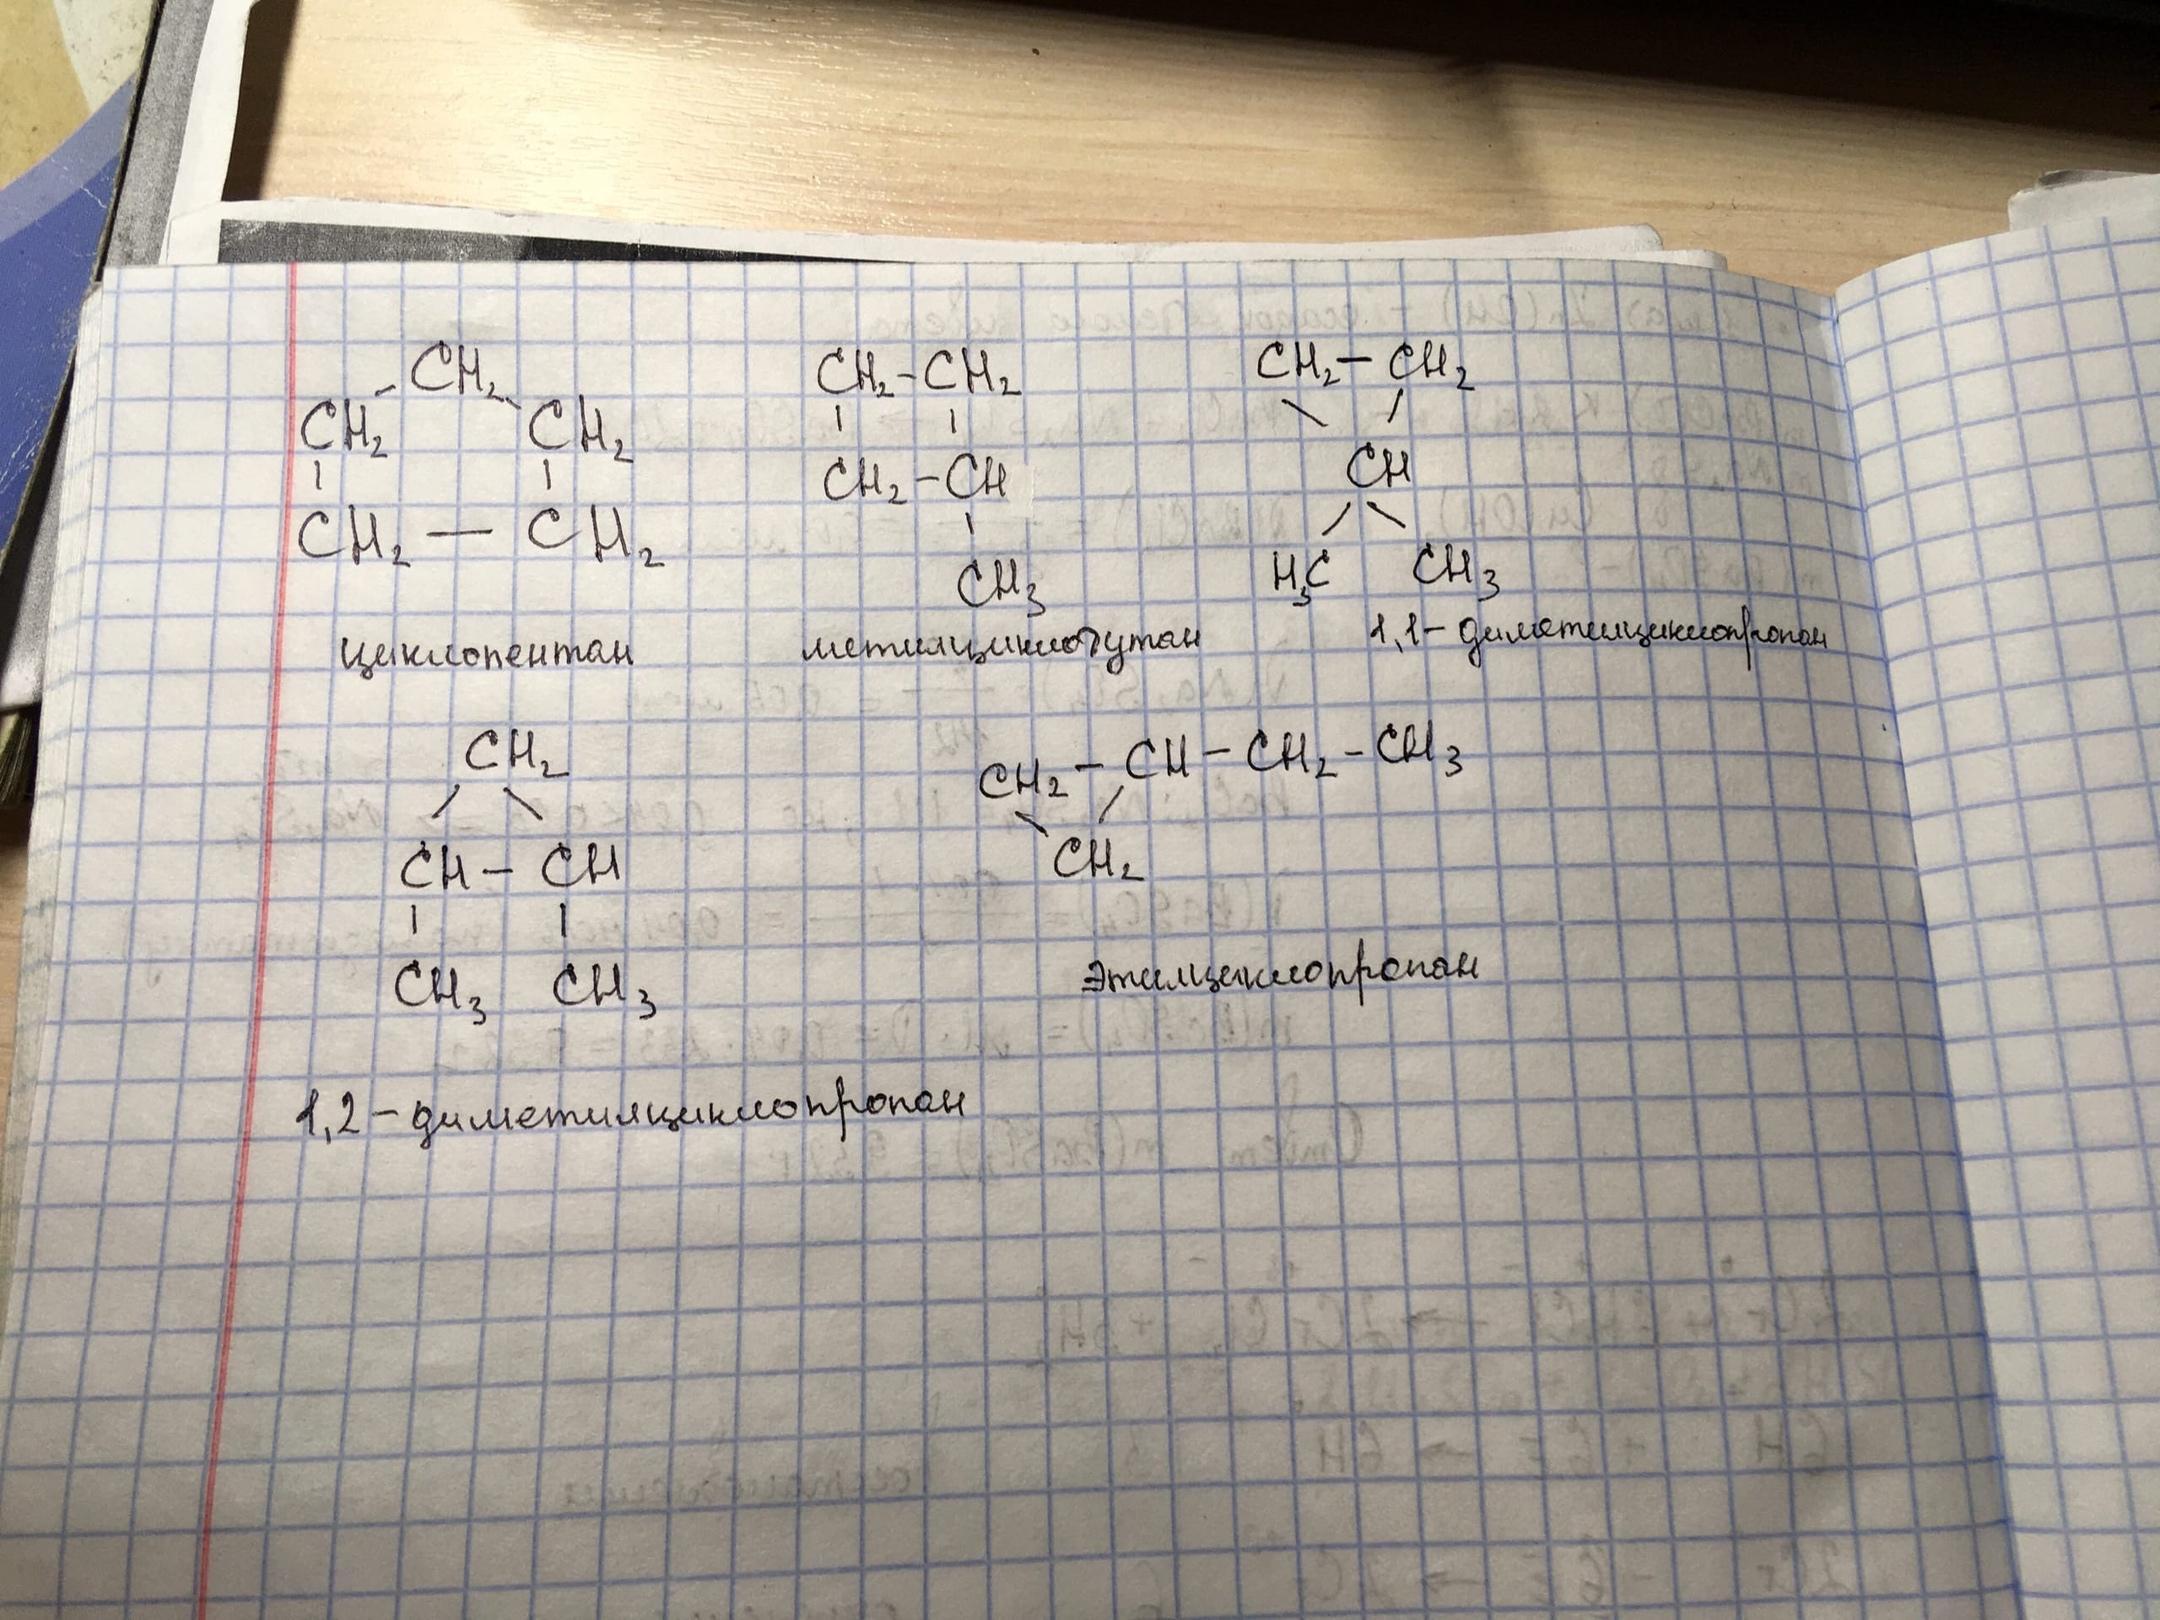 CH₂
CH₂ CH₂
CH₂ — CH₂
циклопентан
CH₂-CH₂
CH₂-CH
CH₃
метилциклобутан
CH₂-CH₂
CH
H₃C CH₃
1,1-диметилциклопропан
CH₂
CH-CH
CH₃ CH₃
1,2-диметилциклопропан
CH₂-CH-CH₂-CH₃
CH₂
этилциклопропан